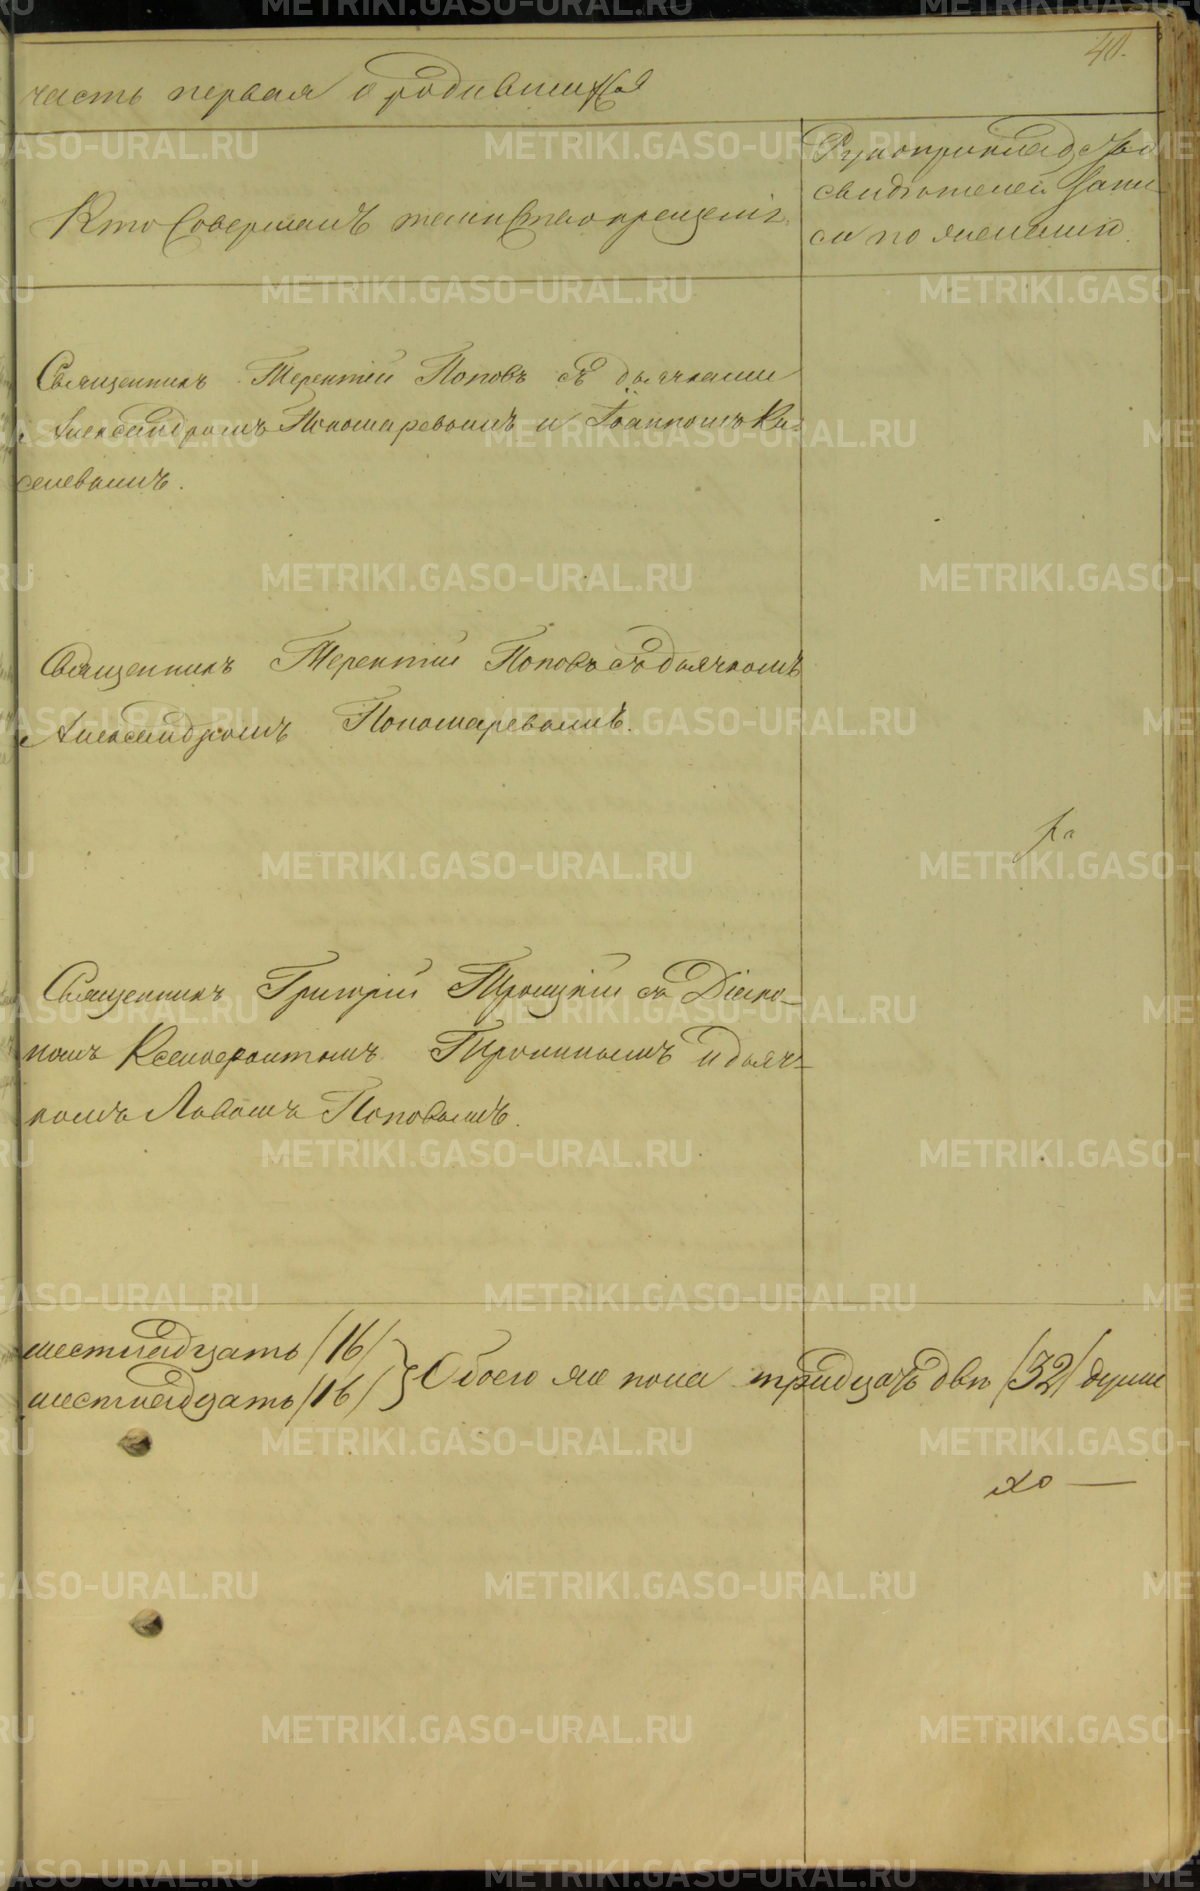 40.
часть первая о родившихся
Кто Совершалъ таинство крещенія.
Рукоприкладство
свидѣтелей запи-
си по желанію.
Священникъ Терентій Поповъ съ дьячками
Александромъ Пономаревымъ и Іоанномъ Ки-
селевымъ.
Священникъ Терентій Поповъ съ дьячкомъ
Александромъ Пономаревымъ.
Священникъ Григорій Троицкій съ Діако-
номъ Ксенофонтомъ Трониномъ и дьяч-
комъ Поповымъ.
шестнадцать /16/
шестнадцать /16/
Обоего же пола тридцать двѣ /32/ души
METRIKI.GASO-URAL.RU